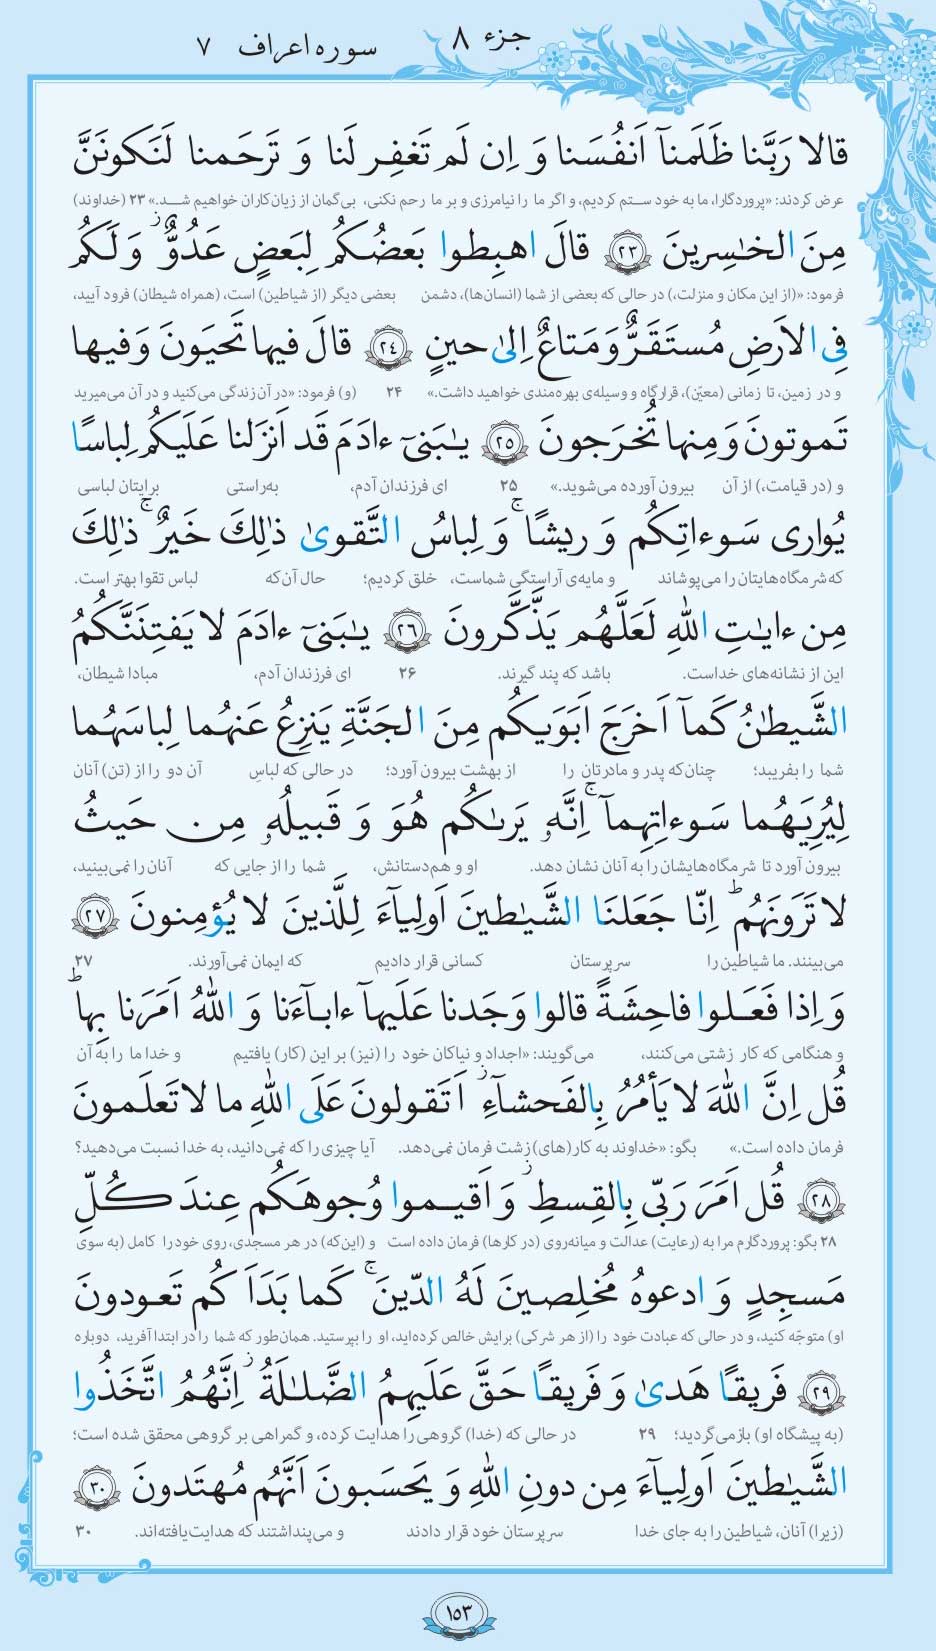 جزء ۸
سوره اعراف ۷
قالا رَبَّنا ظَلَمنآ اَنفُسَنا وَ اِن لَم تَغفِر لَنا وَ تَرحَمنا لَنَکونَنَّ
عرض کردند: «پروردگارا، ما به خود ستم کردیم، و اگر ما را نیامرزی و بر ما رحم نکنی، بی‌گمان از زیان‌کاران خواهیم شد.» ۲۳ (خداوند)
مِنَ الخٰسِرینَ ﴿۲۳﴾ قالَ اهبِطوا بَعضُکُم لِبَعضٍ عَدُوٌّ ۖز وَ لَکُم
فرمود: «(از این مکان و منزلت،) در حالی که بعضی از شما (انسان‌ها)، دشمن بعضی دیگر (از شیاطین) است، (همراه شیطان) فرود آیید،
فِی الاَرضِ مُستَقَرٌّ وَ مَتاعٌ اِلیٰ حینٍ ﴿۲۴﴾ قالَ فیها تَحیَونَ وَ فیها
و در زمین، تا زمانی (معیّن)، قرارگاه و وسیله‌ی بهره‌مندی خواهید داشت.» ۲۴ (و) فرمود: «در آن زندگی می‌کنید و در آن می‌میرید
تَموتونَ وَ مِنها تُخرَجونَ ﴿۲۵﴾ یـٰبَنیٓ ءادَمَ قَد اَنزَلنا عَلَیکُم لِباسًا
و (در قیامت،) از آن بیرون آورده می‌شوید.» ۲۵ ای فرزندان آدم، به‌راستی برایتان لباسی
یُواری سَوءاتِکُم وَ ریشًا ۚ وَ لِباسُ التَّقویٰ ذٰلِکَ خَیرٌ ۚ ذٰلِکَ
که شرمگاه‌هایتان را می‌پوشاند و مایه‌ی آراستگی شماست، خلق کردیم؛ حال آن‌که لباس تقوا بهتر است.
مِن ءایـٰتِ اللهِ لَعَلَّهُم یَذَّکَّرونَ ﴿۲۶﴾ یـٰبَنیٓ ءادَمَ لا یَفتِنَنَّکُمُ
این از نشانه‌های خداست. باشد که پند گیرند. ۲۶ ای فرزندان آدم، مبادا شیطان،
الشَّیطٰنُ کَمآ اَخرَجَ اَبَوَیکُم مِنَ الجَنَّةِ یَنزِعُ عَنهُما لِباسَهُما
شما را بفریبد؛ چنان‌که پدر و مادرتان را از بهشت بیرون آورد؛ در حالی که لباسِ آن دو را از (تن) آنان
لِیُرِیَهُما سَوءاتِهِمآ ۚ اِنَّهٗ یَرىٰکُم هُوَ وَ قَبیلُهٗ مِن حَیثُ
بیرون آورد تا شرمگاه‌هایشان را به آنان نشان دهد. او و هم‌دستانش، شما را از جایی که آنان را نمی‌بینید،
لا تَرَونَهُم ۗط اِنّا جَعَلنَا الشَّیـٰطینَ اَولِیآءَ لِلَّذینَ لا یُؤمِنونَ ﴿۲۷﴾
می‌بینند. ما شیاطین را سرپرستان کسانی قرار دادیم که ایمان نمی‌آورند. ۲۷
وَ اِذا فَعَلوا فاحِشَةً قالوا وَجَدنا عَلَیهآ ءابآءَنا وَ اللهُ اَمَرَنا بِها ط
و هنگامی که کار زشتی می‌کنند، می‌گویند: «اجداد و نیاکان خود را (نیز) بر این (کار) یافتیم و خدا ما را به آن
قُل اِنَّ اللهَ لا یَأمُرُ بِالفَحشآءِ ز اَتَقولونَ عَلَی اللهِ ما لا تَعلَمونَ
فرمان داده است.» بگو: «خداوند به کار(های) زشت فرمان نمی‌دهد. آیا چیزی را که نمی‌دانید، به خدا نسبت می‌دهید؟
﴿۲۸﴾ قُل اَمَرَ رَبّی بِالقِسطِ ز وَ اَقیموا وُجوهَکُم عِندَ کُلِّ
۲۸ بگو: پروردگارم مرا به (رعایت) عدالت و میانه‌روی (در کارها) فرمان داده است و (این‌که) در هر مسجدی، روی خود را کامل (به سوی
مَسجِدٍ وَ ادعوهُ مُخلِصینَ لَهُ الدّینَ ۚ کَما بَدَاَکُم تَعودونَ
او) متوجّه کنید، و در حالی که عبادت خود را (از هر شرکی) برایش خالص کرده‌اید، او را بپرستید. همان‌طور که شما را در ابتدا آفرید، دوباره
﴿۲۹﴾ فَریقًا هَدیٰ وَ فَریقًا حَقَّ عَلَیهِمُ الضَّلـٰلَةُ ز اِنَّهُمُ اتَّخَذُوا
(به پیشگاه او) بازمی‌گردید؛ ۲۹ در حالی که (خدا) گروهی را هدایت کرده، و گمراهی بر گروهی محقق شده است؛
الشَّیـٰطینَ اَولِیآءَ مِن دونِ اللهِ وَ یَحسَبونَ اَنَّهُم مُهتَدونَ ﴿۳۰﴾
(زیرا) آنان، شیاطین را به جای خدا سرپرستان خود قرار دادند و می‌پنداشتند که هدایت‌یافته‌اند. ۳۰
۱۵۳